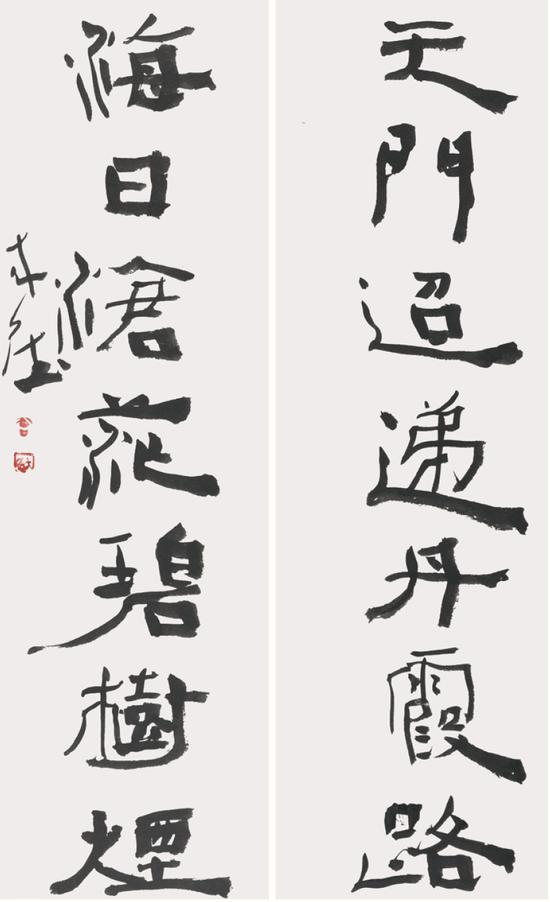 天門迢递丹霞路
海日滄茫碧樹煙